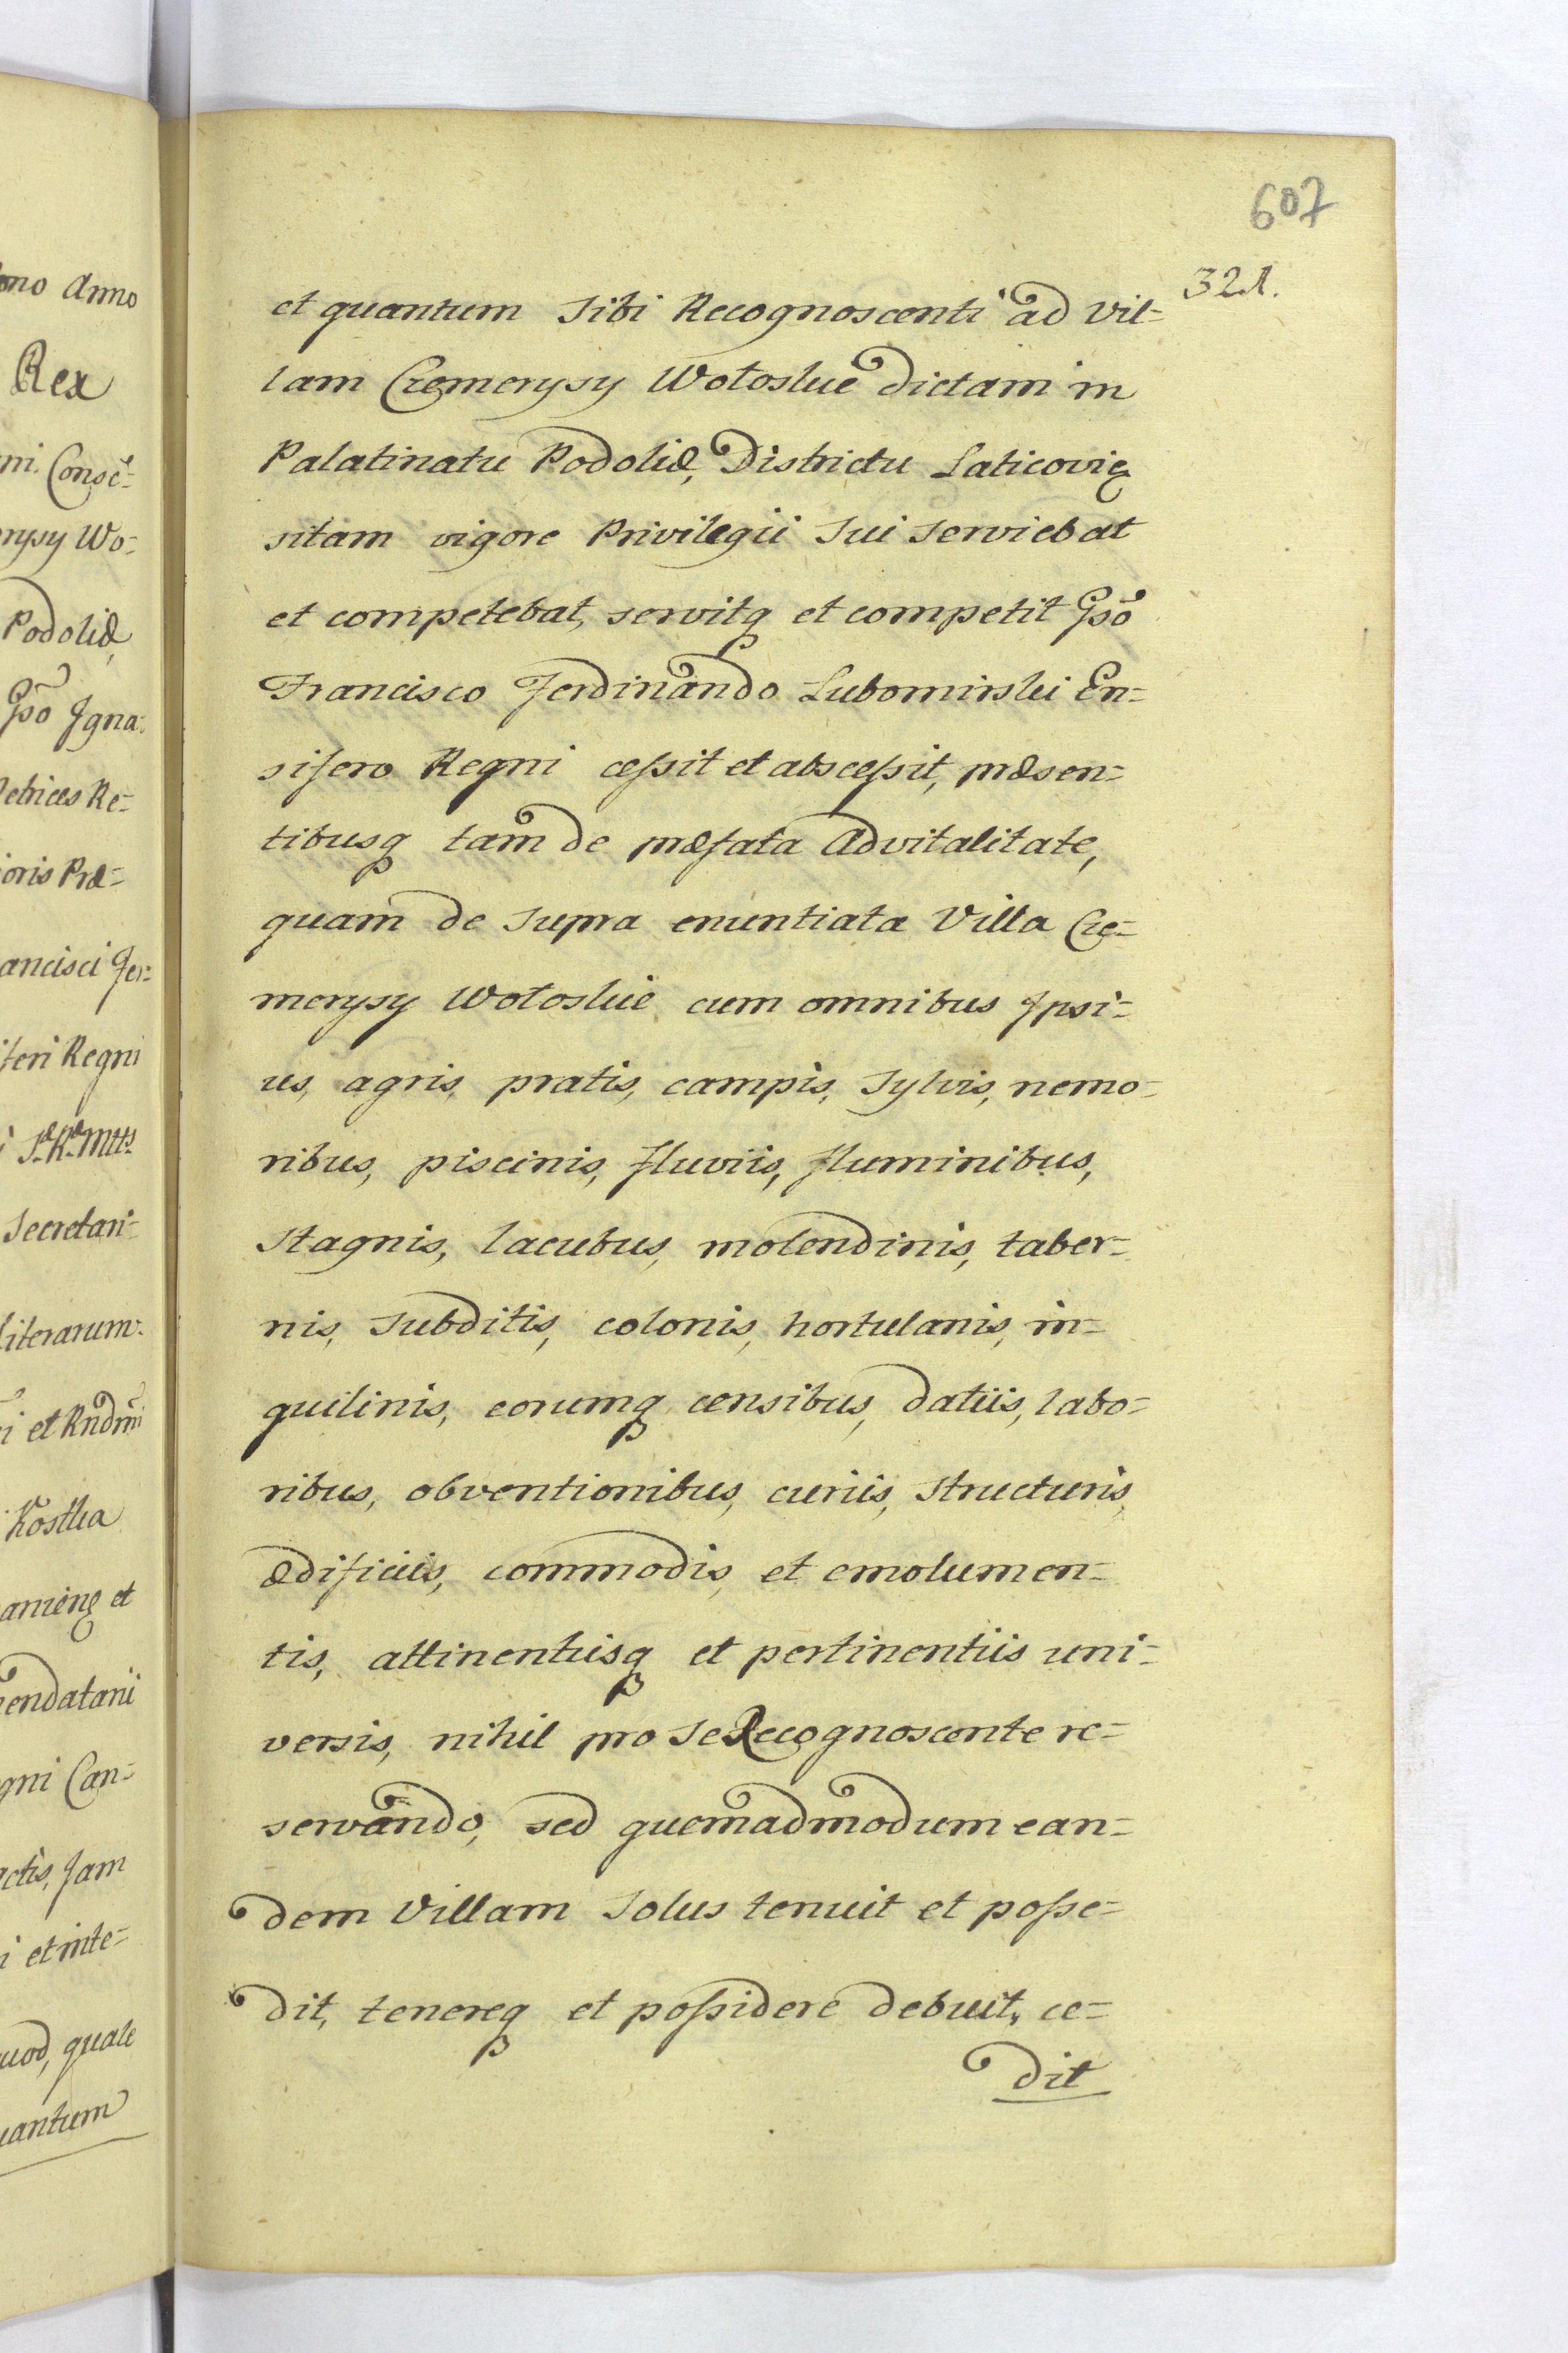 607
321.
et quantum Sibi Recognoscenti ad Vil=
lam Czemerysy Wołoskie dictam in
Palatinatu Podoliæ, Districtu Laticoviẹ
sitam vigore Privilegii Sui Serviebat
et competebat, servitq et competit Gso
Francisco Ferdinando Lubomirski En=
sifero Regni cessit et abscessit, præsen=
tibusq tam de præfata Advitalitate,
quam de Supra enuntiata Villa Cze=
merysy Wołoskie cum omnibus Ipsi=
us, agris, pratis, campis, Sylvis, nemo=
ribus, piscinis, fluviis, fluminibus,
Stagnis, lacubus, molendinis, taber=
nis, Subditis, colonis, hortulanis, in=
quilinis, eorumq censibus, datiis, labo=
ribus, obventionibus, curiis, Structuris,
ædificiis, commodis, et emolumen=
tis, attinentiisq et pertinentiis uni=
versis, nihil pro Se Recognoscente re=
servando, sed quemadmodum ean=
dem Villam Solus tenuit et posse=
dit, tenereq et possidere debuit, ce=
dit
ono Anno
Rex
ni. Consẽ=
erysy Wo=
Podoliæ,
Gso Igna=
Metrices Re=
ioris Præ=
ancisci Fer=
iferi Regni
S. R. Mttis
Secretari=
literarum
i et Rndmi
Kostka
amieng et
mendatarii
gni Can=
actis, Jam
i et inte=
uod, quale
uantum